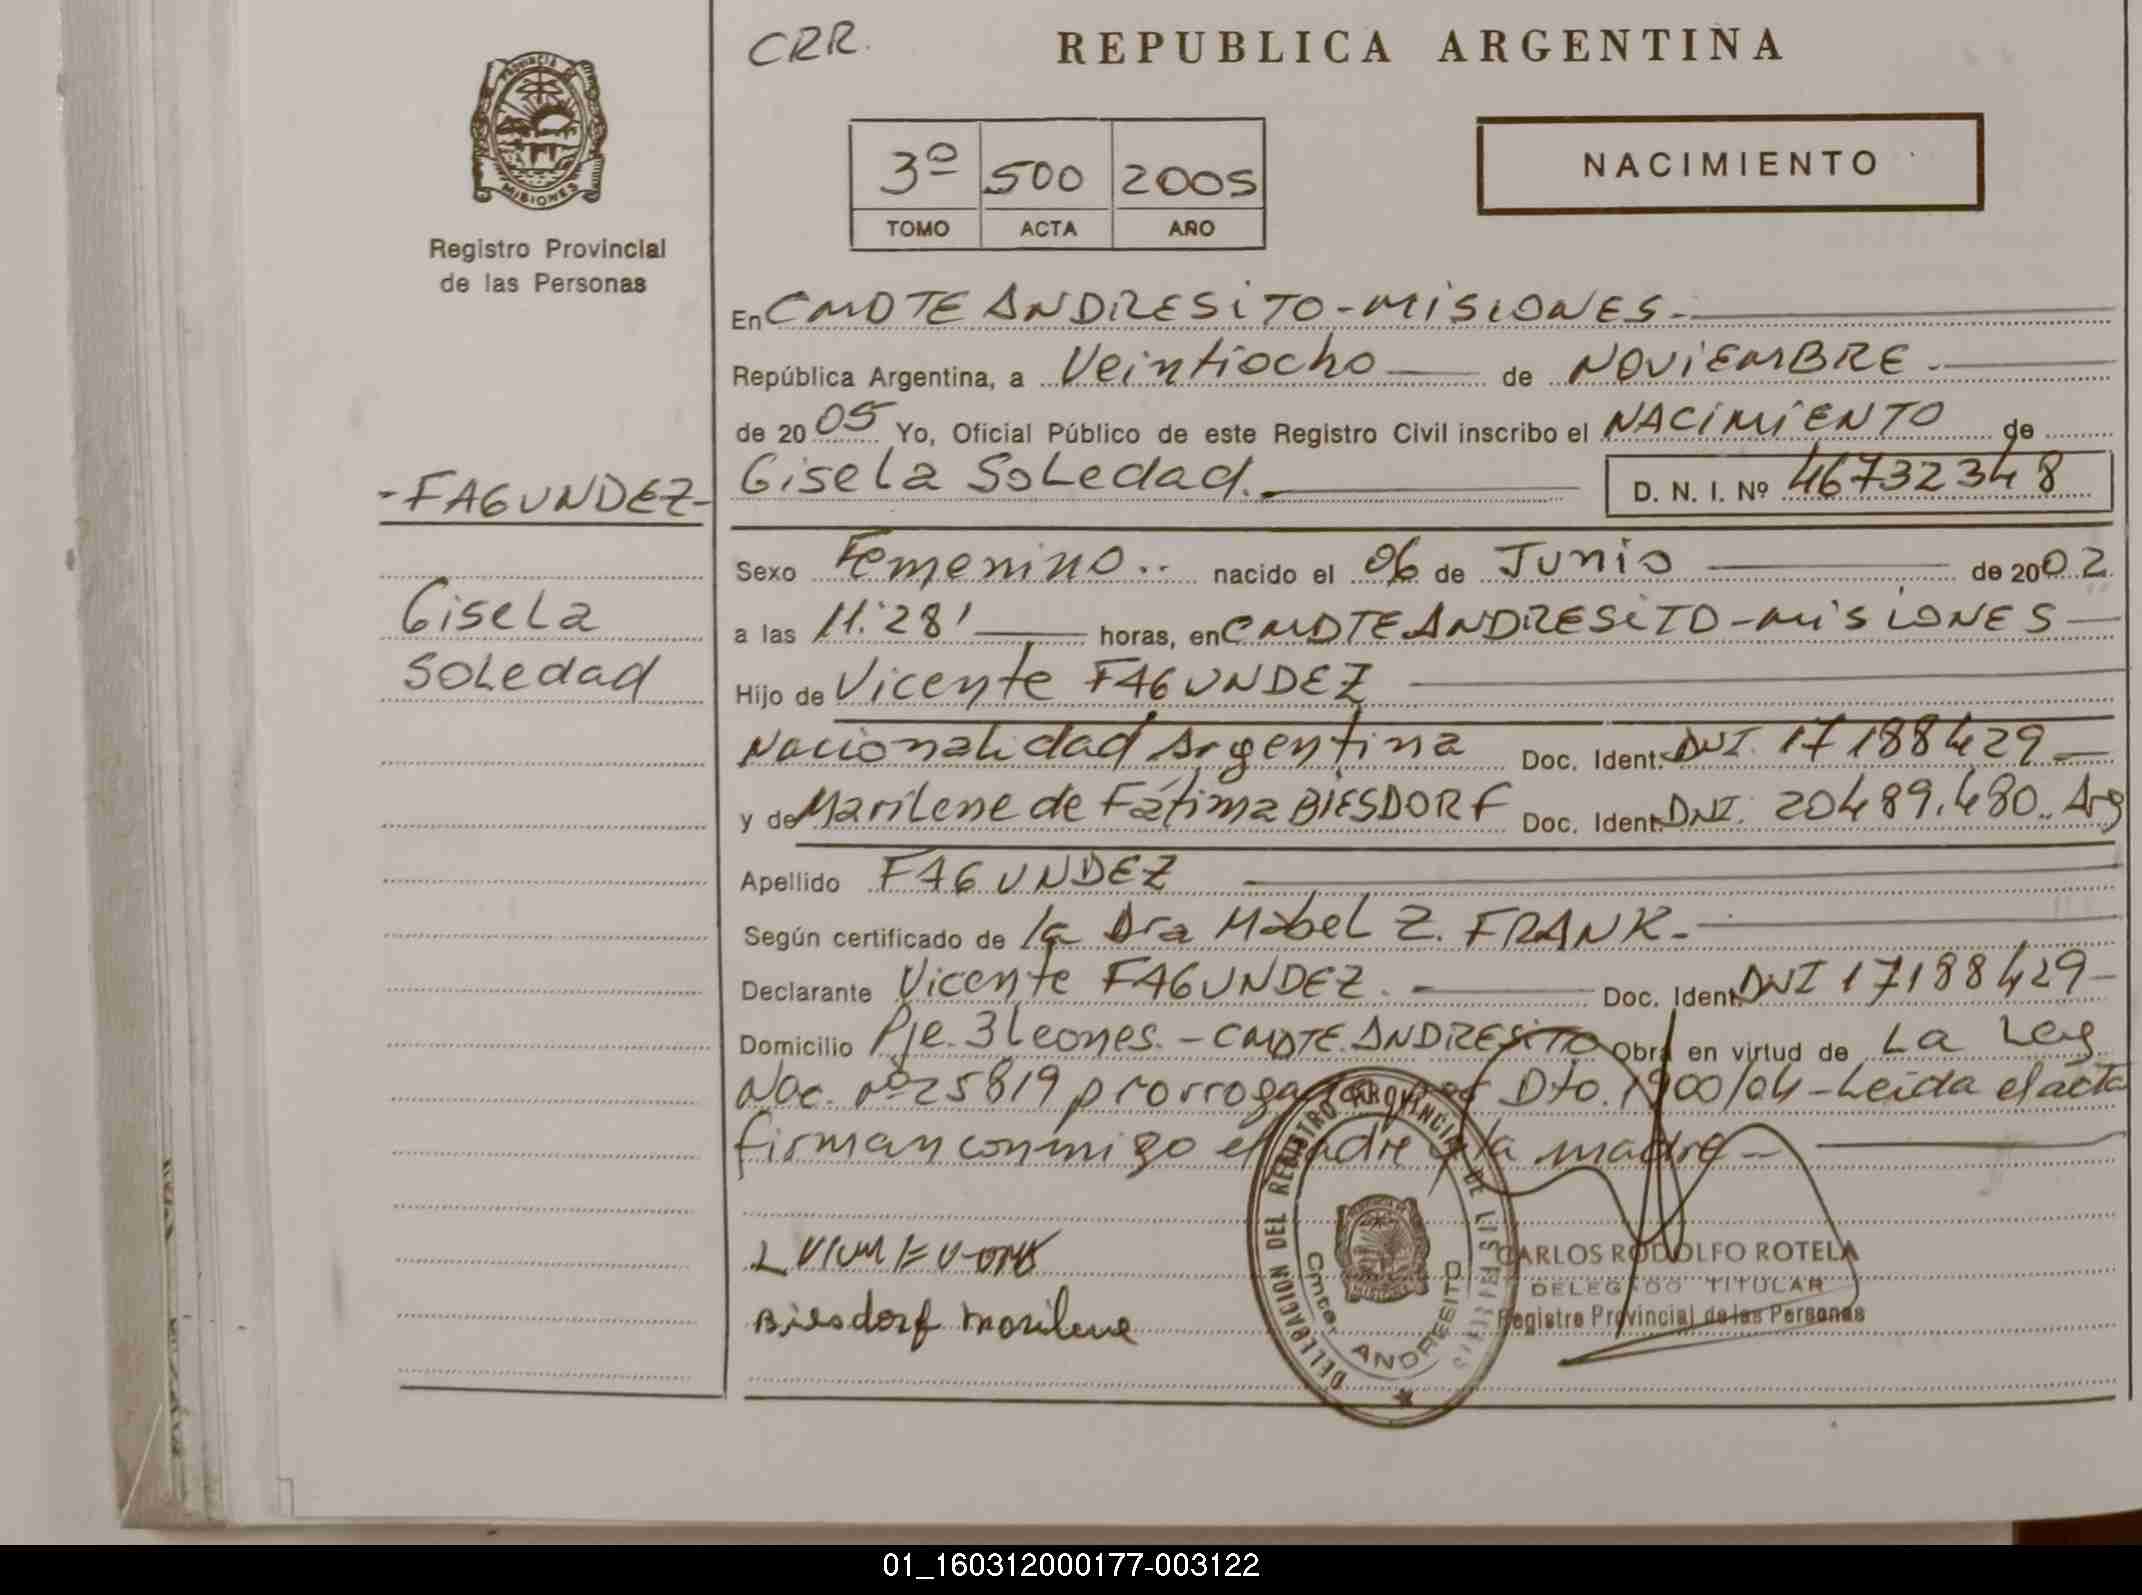 CRR.
REPUBLICA ARGENTINA
PROVINCIA D
MISIONES
Registro Provincial
de las Personas
3º 500 2005
TOMO ACTA AÑO
NACIMIENTO
En CMDTE ANDRESITO-MISIONES.-
República Argentina, a Veintiocho de NOVIEMBRE.-
de 2005 Yo, Oficial Público de este Registro Civil inscribo el NACIMIENTO de
-FAGUNDEZ-
Gisela Soledad.- D. N. I. Nº 46732348
Sexo Femenino.. nacido el 06 de Junio de 2002.
Gisela
Soledad
a las 11:28' horas, en CMDTE ANDRESITO-MISIONES
Hijo de Vicente FAGUNDEZ
Nacionalidad Argentina Doc. Ident. DNI. 17188429-
y de Marilene de Fátima BIESDORF Doc. Ident. DNI. 20489.480.. Arg
Apellido FAGUNDEZ
Según certificado de la Dra Mabel Z. FRANK.-
Declarante Vicente FAGUNDEZ.- Doc. Ident. DNI 17188429-
Domicilio Pje. 3 Leones.-CMDTE.ANDRESITO Obra en virtud de La Ley
Nac. nº 25819 por Dto. 1900/04-Leida el acta
firman conmigo el padre y la madre-
Biesdorf Marilene
DELEGACION DEL REGISTRO PROVINCIAL DE LAS
Cmte. ANDRESITO
CARLOS RODOLFO ROTELA
DELEGADO TITULAR
Registro Provincial de las Personas
01_160312000177-003122